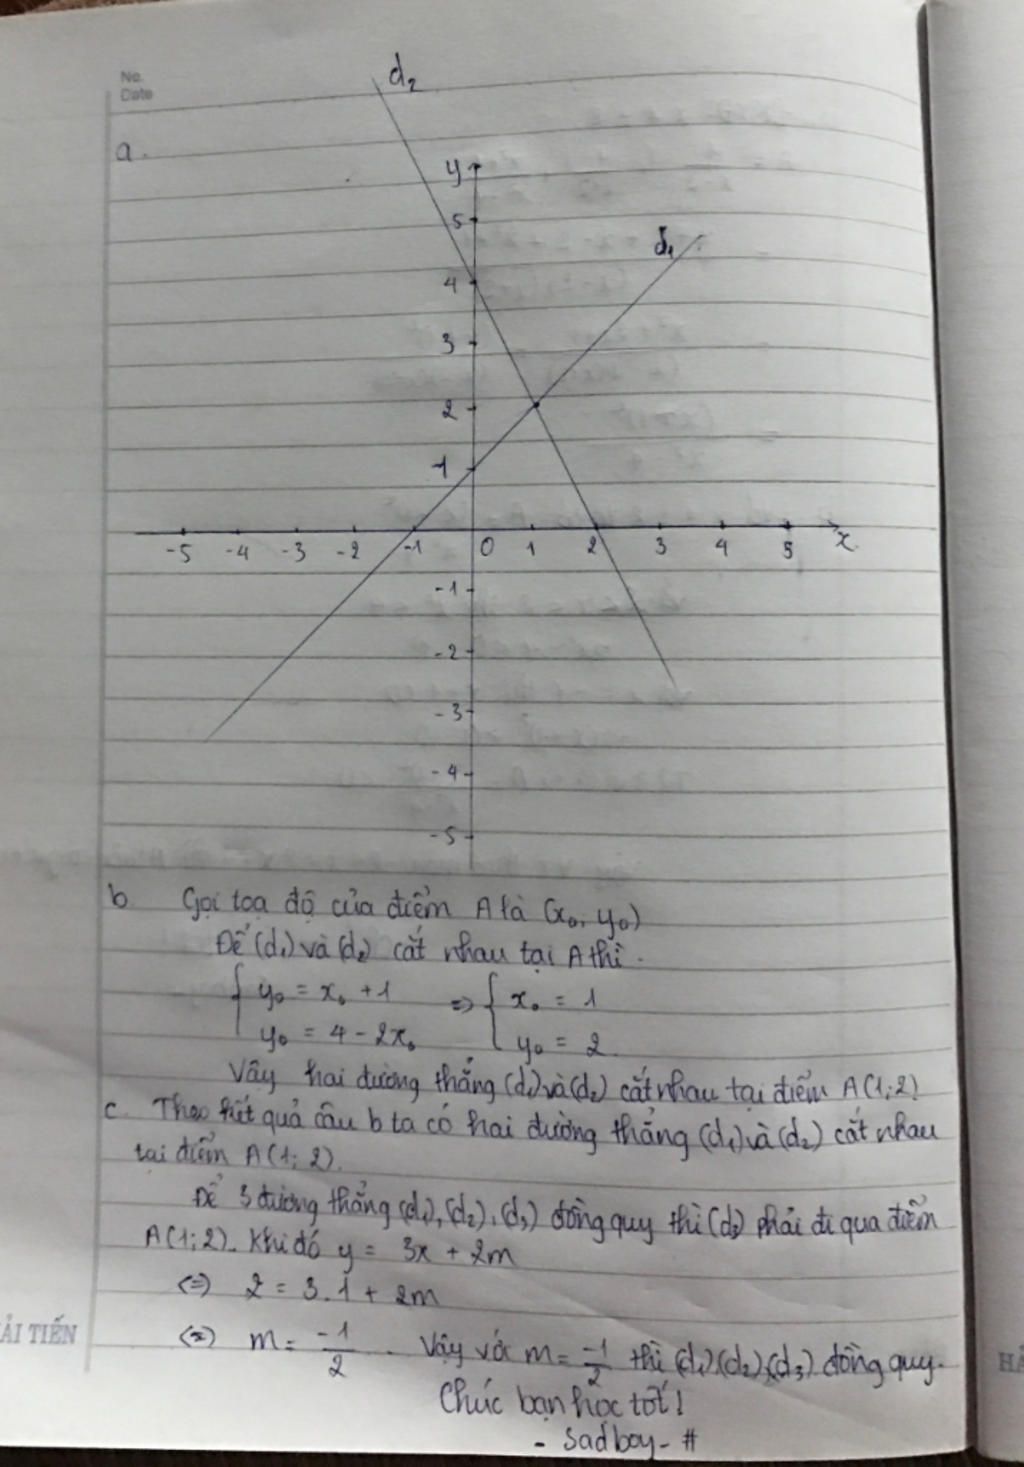 No.
Date
a.
d₂
y
5
d₁
4
3
2
1
-5 -4 -3 -2 -1 0 1 2 3 4 5 x
-1
-2
-3
-4
-5
b Gọi toạ độ của điểm A là (x₀; y₀)
Để (d₁) và (d₂) cắt nhau tại A thì.
{ y₀ = x₀ + 1 => { x₀ = 1
y₀ = 4 - 2x₀ y₀ = 2.
Vậy hai đường thẳng (d₁) và (d₂) cắt nhau tại điểm A(1;2)
c. Theo kết quả câu b ta có hai đường thẳng (d₁) và (d₂) cắt nhau
tại điểm A(1; 2).
Để 3 đường thẳng (d₁), (d₂), (d₃) đồng quy thì (d₃) phải đi qua điểm
A(1;2). Khi đó y = 3x + 2m
<=> 2 = 3.1 + 2m
<=> m = -1/2. Vậy với m = -1/2 thì (d₁),(d₂),(d₃) đồng quy.
Chúc bạn học tốt!
- Sadboy - #
ẢI TIẾN
HẢ